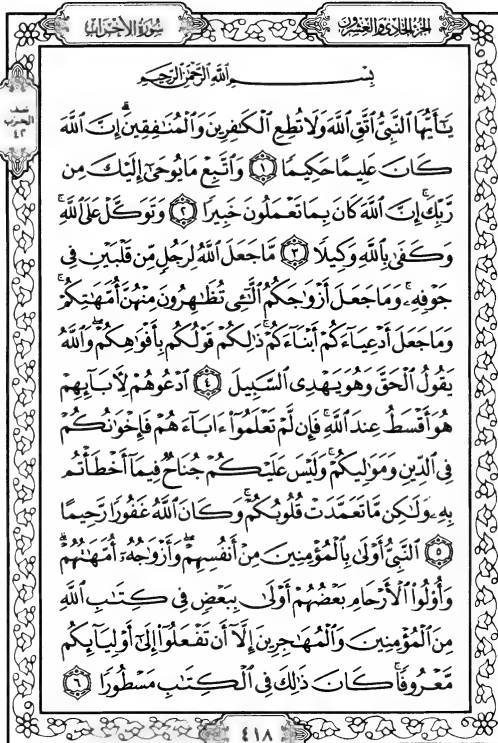 الجُزْءُ الحَادِي وَالعِشْرُونَ
سُورَةُ الأَحْزَابِ
نصف
الحزب
٤٢
بِسْمِ ٱللَّهِ ٱلرَّحْمَٰنِ ٱلرَّحِيمِ
يَٰٓأَيُّهَا ٱلنَّبِىُّ ٱتَّقِ ٱللَّهَ وَلَا تُطِعِ ٱلْكَٰفِرِينَ وَٱلْمُنَٰفِقِينَۗ إِنَّ ٱللَّهَ
كَانَ عَلِيمًا حَكِيمًا ١ وَٱتَّبِعْ مَا يُوحَىٰٓ إِلَيْكَ مِن
رَّبِّكَۚ إِنَّ ٱللَّهَ كَانَ بِمَا تَعْمَلُونَ خَبِيرًا ٢ وَتَوَكَّلْ عَلَى ٱللَّهِۚ
وَكَفَىٰ بِٱللَّهِ وَكِيلًا ٣ مَّا جَعَلَ ٱللَّهُ لِرَجُلٍ مِّن قَلْبَيْنِ فِى
جَوْفِهِۦۚ وَمَا جَعَلَ أَزْوَٰجَكُمُ ٱلَّٰٓـِٔى تُظَٰهِرُونَ مِنْهُنَّ أُمَّهَٰتِكُمْۚ
وَمَا جَعَلَ أَدْعِيَآءَكُمْ أَبْنَآءَكُمْۚ ذَٰلِكُمْ قَوْلُكُم بِأَفْوَٰهِكُمْۖ وَٱللَّهُ
يَقُولُ ٱلْحَقَّ وَهُوَ يَهْدِى ٱلسَّبِيلَ ٤ ٱدْعُوهُمْ لِـَٔابَآئِهِمْ
هُوَ أَقْسَطُ عِندَ ٱللَّهِۚ فَإِن لَّمْ تَعْلَمُوٓا۟ ءَابَآءَهُمْ فَإِخْوَٰنُكُمْ
فِى ٱلدِّينِ وَمَوَٰلِيكُمْۚ وَلَيْسَ عَلَيْكُمْ جُنَاحٌ فِيمَآ أَخْطَأْتُم
بِهِۦ وَلَٰكِن مَّا تَعَمَّدَتْ قُلُوبُكُمْۚ وَكَانَ ٱللَّهُ غَفُورًا رَّحِيمًا
٥ ٱلنَّبِىُّ أَوْلَىٰ بِٱلْمُؤْمِنِينَ مِنْ أَنفُسِهِمْۖ وَأَزْوَٰجُهُۥٓ أُمَّهَٰتُهُمْۗ
وَأُو۟لُوا۟ ٱلْأَرْحَامِ بَعْضُهُمْ أَوْلَىٰ بِبَعْضٍ فِى كِتَٰبِ ٱللَّهِ
مِنَ ٱلْمُؤْمِنِينَ وَٱلْمُهَٰجِرِينَ إِلَّآ أَن تَفْعَلُوٓا۟ إِلَىٰٓ أَوْلِيَآئِكُم
مَّعْرُوفًاۚ كَانَ ذَٰلِكَ فِى ٱلْكِتَٰبِ مَسْطُورًا ٦
٤١٨